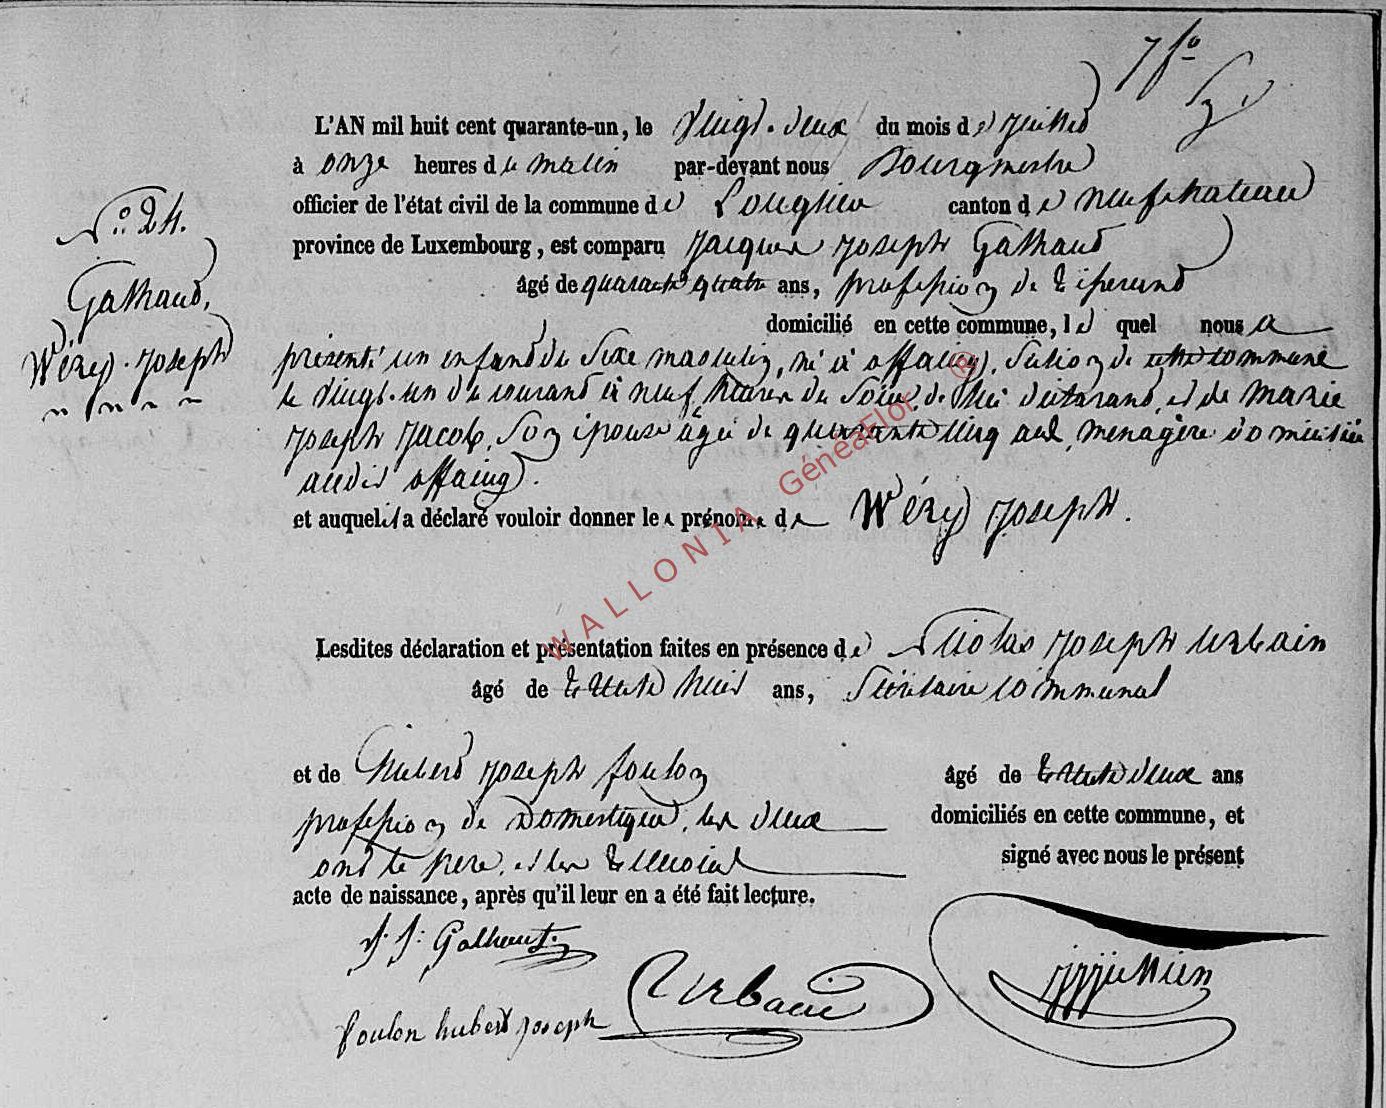 7 fo
L'AN mil huit cent quarante-un, le Vingt-deux du mois de Juillet
à onze heures du matin par-devant nous Bourgmestre
officier de l'état civil de la commune de Longlier canton de neufchateau
province de Luxembourg, est comparu Jacques Joseph Galhaut
âgé de quarante quatre ans, profession de tisserand
domicilié en cette commune, le quel nous a
présenté un enfant du Sexe masculin, né à offaing, Section de cette commune
le Vingt-un du courant à neuf heures du Soir, de lui déclarant, et de Marie
Joseph Jacob, Son épouse âgée de quarante cinq ans, menagère domiciliée
audit offaing.
et auquel il a déclaré vouloir donner les prénoms de Wéry Joseph.
No: 24.
Galhaut,
Wéry-Joseph
Lesdites déclaration et présentation faites en présence de Nicolas Joseph Urbain
âgé de trente huit ans, Sécrétaire communal
et de Hubert Joseph foulon âgé de trente deux ans
profession de Domestique, les deux domiciliés en cette commune, et
ont le père, et les témoins signé avec nous le présent
acte de naissance, après qu'il leur en a été fait lecture.
J. J: Galhaut.
Urbain
foulon hubert joseph
WALLONIA GénéaFlor ®